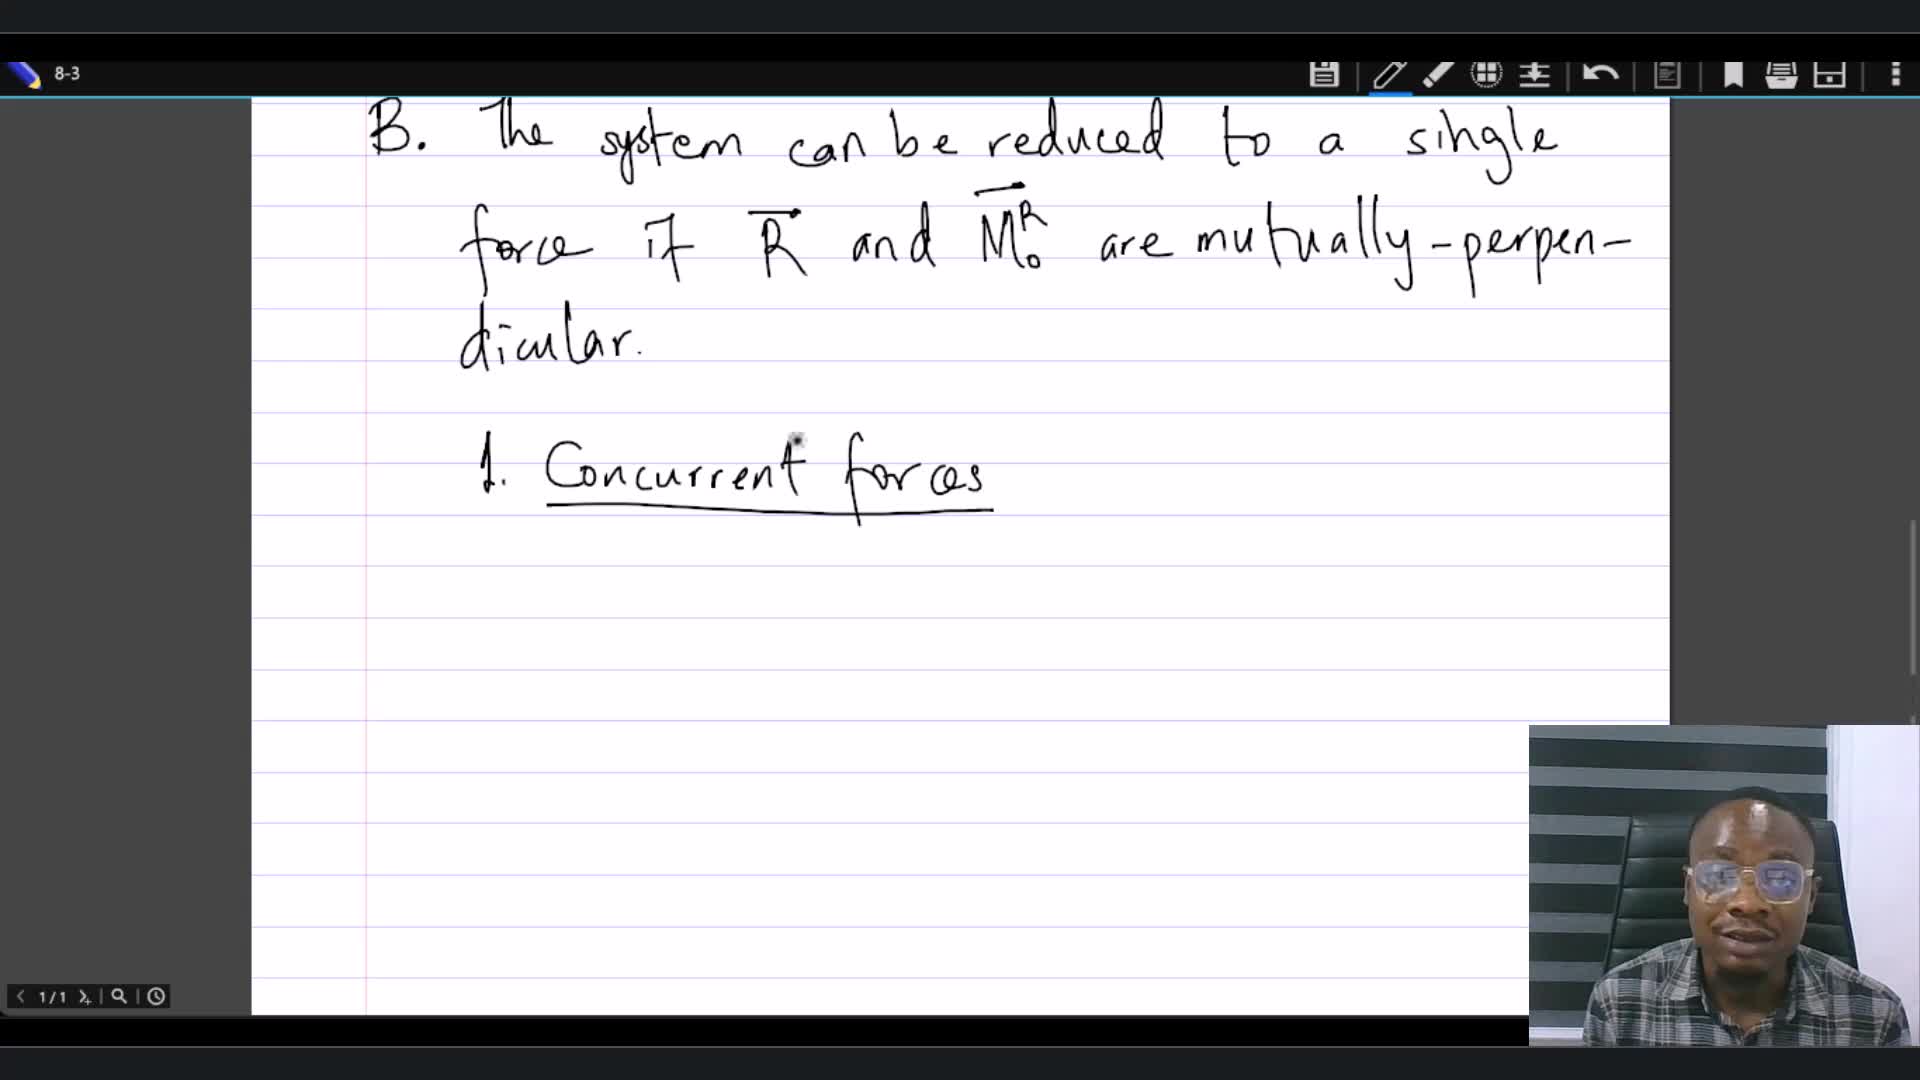 8-3
B. The system can be reduced to a single
force if R and M₀ᴿ are mutually-perpen-
dicular.
1. Concurrent forces
1/1